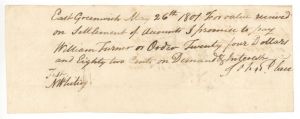 East Greenwich May 26th 1801 For value received
on Settlement of accounts I promise to pay
William Turner or Order Twenty four Dollars
and Eighty two Cents on Demand & Interest
Test